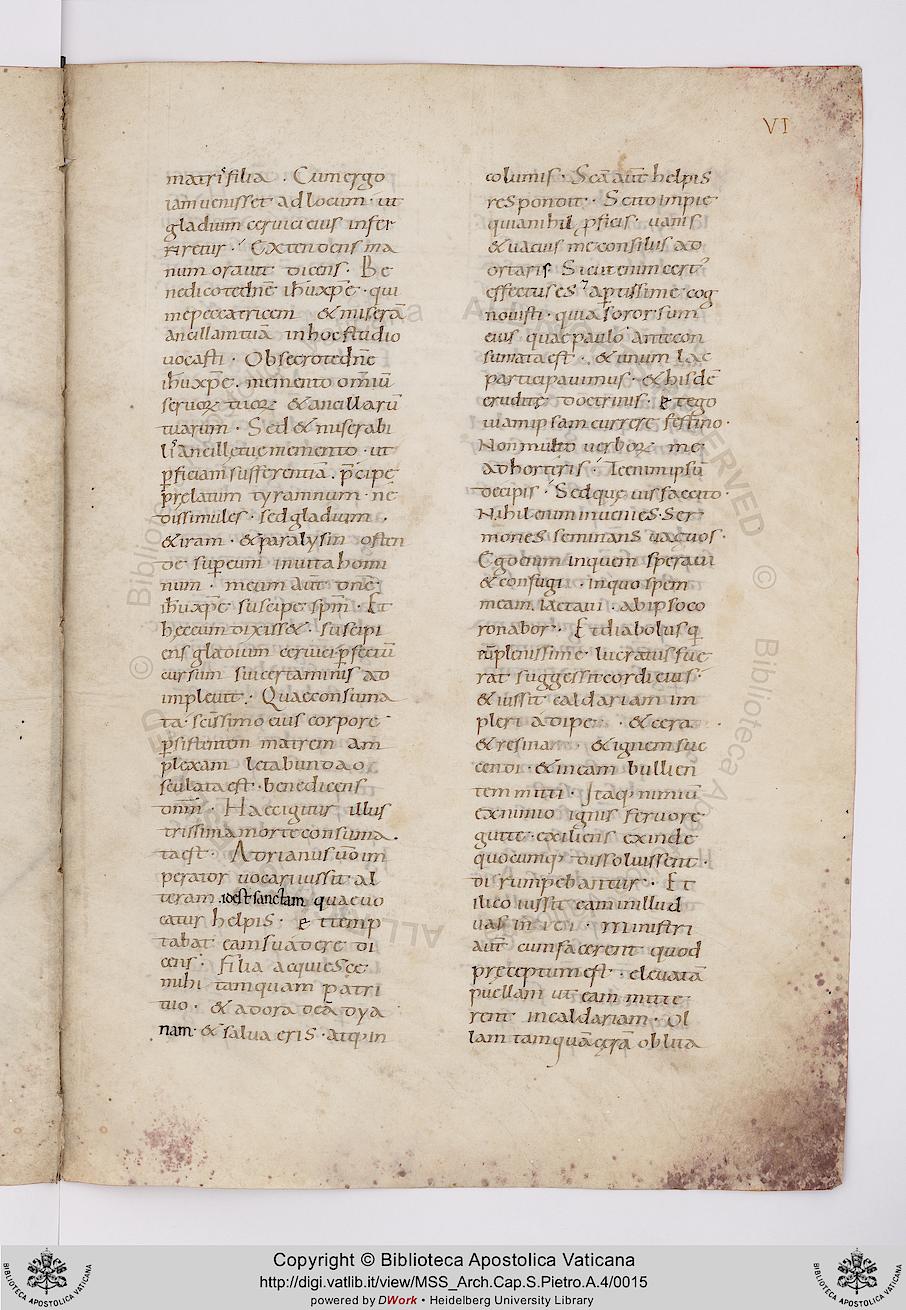 VI
matri filia . Cum ergo
iam uenisset ad locum · ut
gladium ceruici eius infer
riretur · Extendens ma
num orauit dicens · Be
nedico te dn̄e ihū xp̄e · qui
me peccatricem & miserā
ancillam tuā in hoc studio
uocasti · Obsecro te dn̄e
ihū xp̄e . memento om̄iū
seruoꝝ tuoꝝ & ancillarū
tuarum · Sed & miserabi
li ancillę tuę memento · ut
ꝑficiam sufferentiā . p̄cipe
prelatum tyramnum · ne
dissimules · sed gladium ·
& iram · & paralysin osten
de suꝑ eum inuitahomi
num · meum aūt dn̄e
ihū xp̄e suscipe sp̄m · Et
hęc cum dixiss& · suscipi
ens gladium ceruici ꝑfectū
cursum sui certaminis ad
impleuit · Quae consuma
ta · scīssimo eius corpore
ꝑsistentem matrem am
plexam letabunda o
sculata est · benedicens
dn̄m · Hac igitur illus
trissima morte consuma
ta est · Adrianus ūo im
perator uocari iussit al
teram .idest sanctam quae uo
catur helpis · & temp
tabat eam suadere di
cens · Filia acquiesce
mihi tamquam patri
tuo · & adora deā dya
nam · & salua eris · atq· in
columis · Scā aūt helpis
respondit · Scito impie
quia nihil ꝓficis · uanis
& uacuis me consiliis ad
ortaris · Sicut enim cert
effectus es apertissime cog
nouisti · quia soror sum
eius quae paulo ante con
sumata est · & unum lac
participauimus · & hisdē
eruditę doctrinis · & ego
uiam ipsam currere festino ·
Non multo uerboꝝ me
adhorteris · Te enim ipsū
decipis · Sed que iussa cito ·
Nihil enim inuenies · Ser
mones seminans uacuos ·
Ego enim in quem speraui
& confugi · in quo spem
meam iactaui · ab ipso co
ronabor · Et diabolus q
plenissime lucratus fue
rat suggessit cordi eius ·
& iussit caldariam im
pleri adipe · & cera ·
& resina · & ignem suc
cendi · & in eam bullien
tem mitti · Itaq· nimiū
ex nimio ignis feruore
gutte exiliens exinde
quocumq· dissoluissent ·
disrumpebantur · Et
ilico iussit eam in illud
uas mitti · Ministri
aūt cum facerent quod
preceptum est · eleuatā
puellam ut eam mitte
rent in caldariam · Ol
lam tamquā cęra oblita
Copyright © Biblioteca Apostolica Vaticana
http://digi.vatlib.it/view/MSS_Arch.Cap.S.Pietro.A.4/0015
powered by DWork • Heidelberg University Library